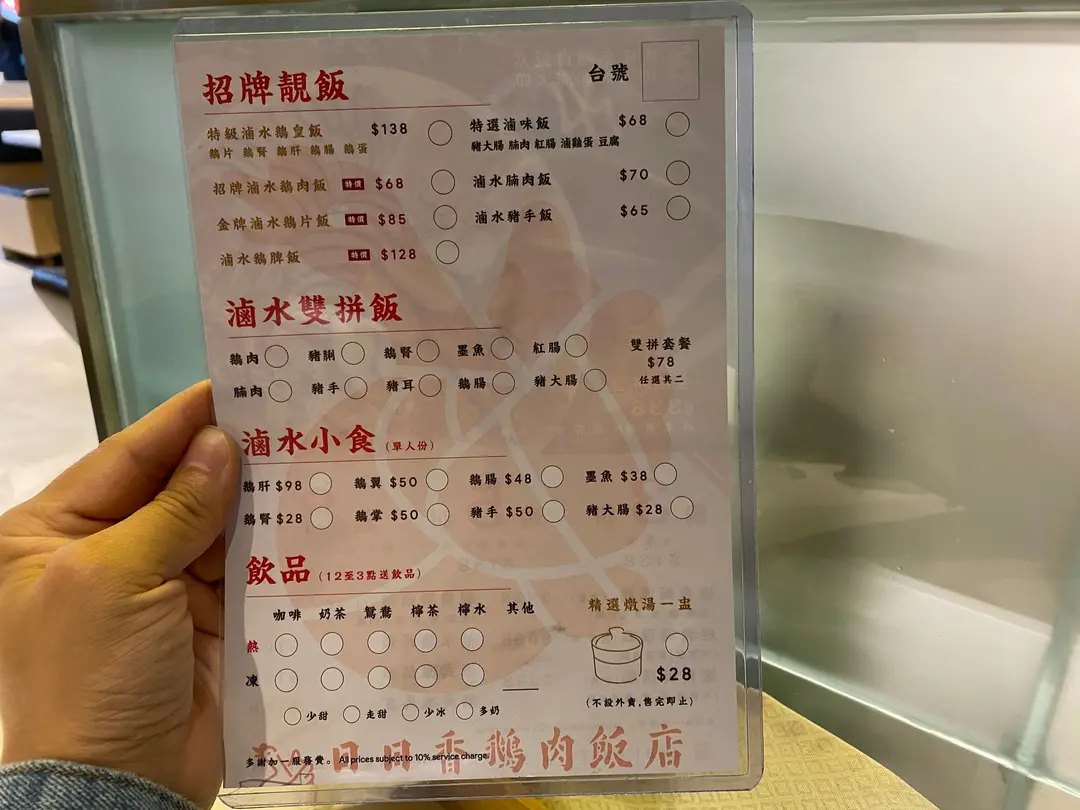 招牌靚飯
台號
特級滷水鵝皇飯 $138
鵝片 鵝腎 鵝肝 鵝腸 鵝蛋
招牌滷水鵝肉飯 特價 $68
金牌滷水鵝片飯 特價 $85
滷水鵝髀飯 特價 $128
特選滷味飯 $68
豬大腸 腩肉 紅腸 滷雞蛋 豆腐
滷水腩肉飯 $70
滷水豬手飯 $65
滷水雙拼飯
鵝肉 豬脷 鵝腎 墨魚 紅腸
腩肉 豬手 豬耳 鵝腸 豬大腸
雙拼套餐
$78
任選其二
滷水小食 (單人份)
鵝肝 $98 鵝翼 $50 鵝腸 $48 墨魚 $38
鵝腎 $28 鵝掌 $50 豬手 $50 豬大腸 $28
飲品 (12至3點送飲品)
咖啡 奶茶 鴛鴦 檸茶 檸水 其他
熱
凍
少甜 走甜 少冰 多奶
精選燉湯一盅
$28
(不設外賣,售完即止)
多謝加一服務費。 All prices subject to 10% service charge.
日日香鵝肉飯店